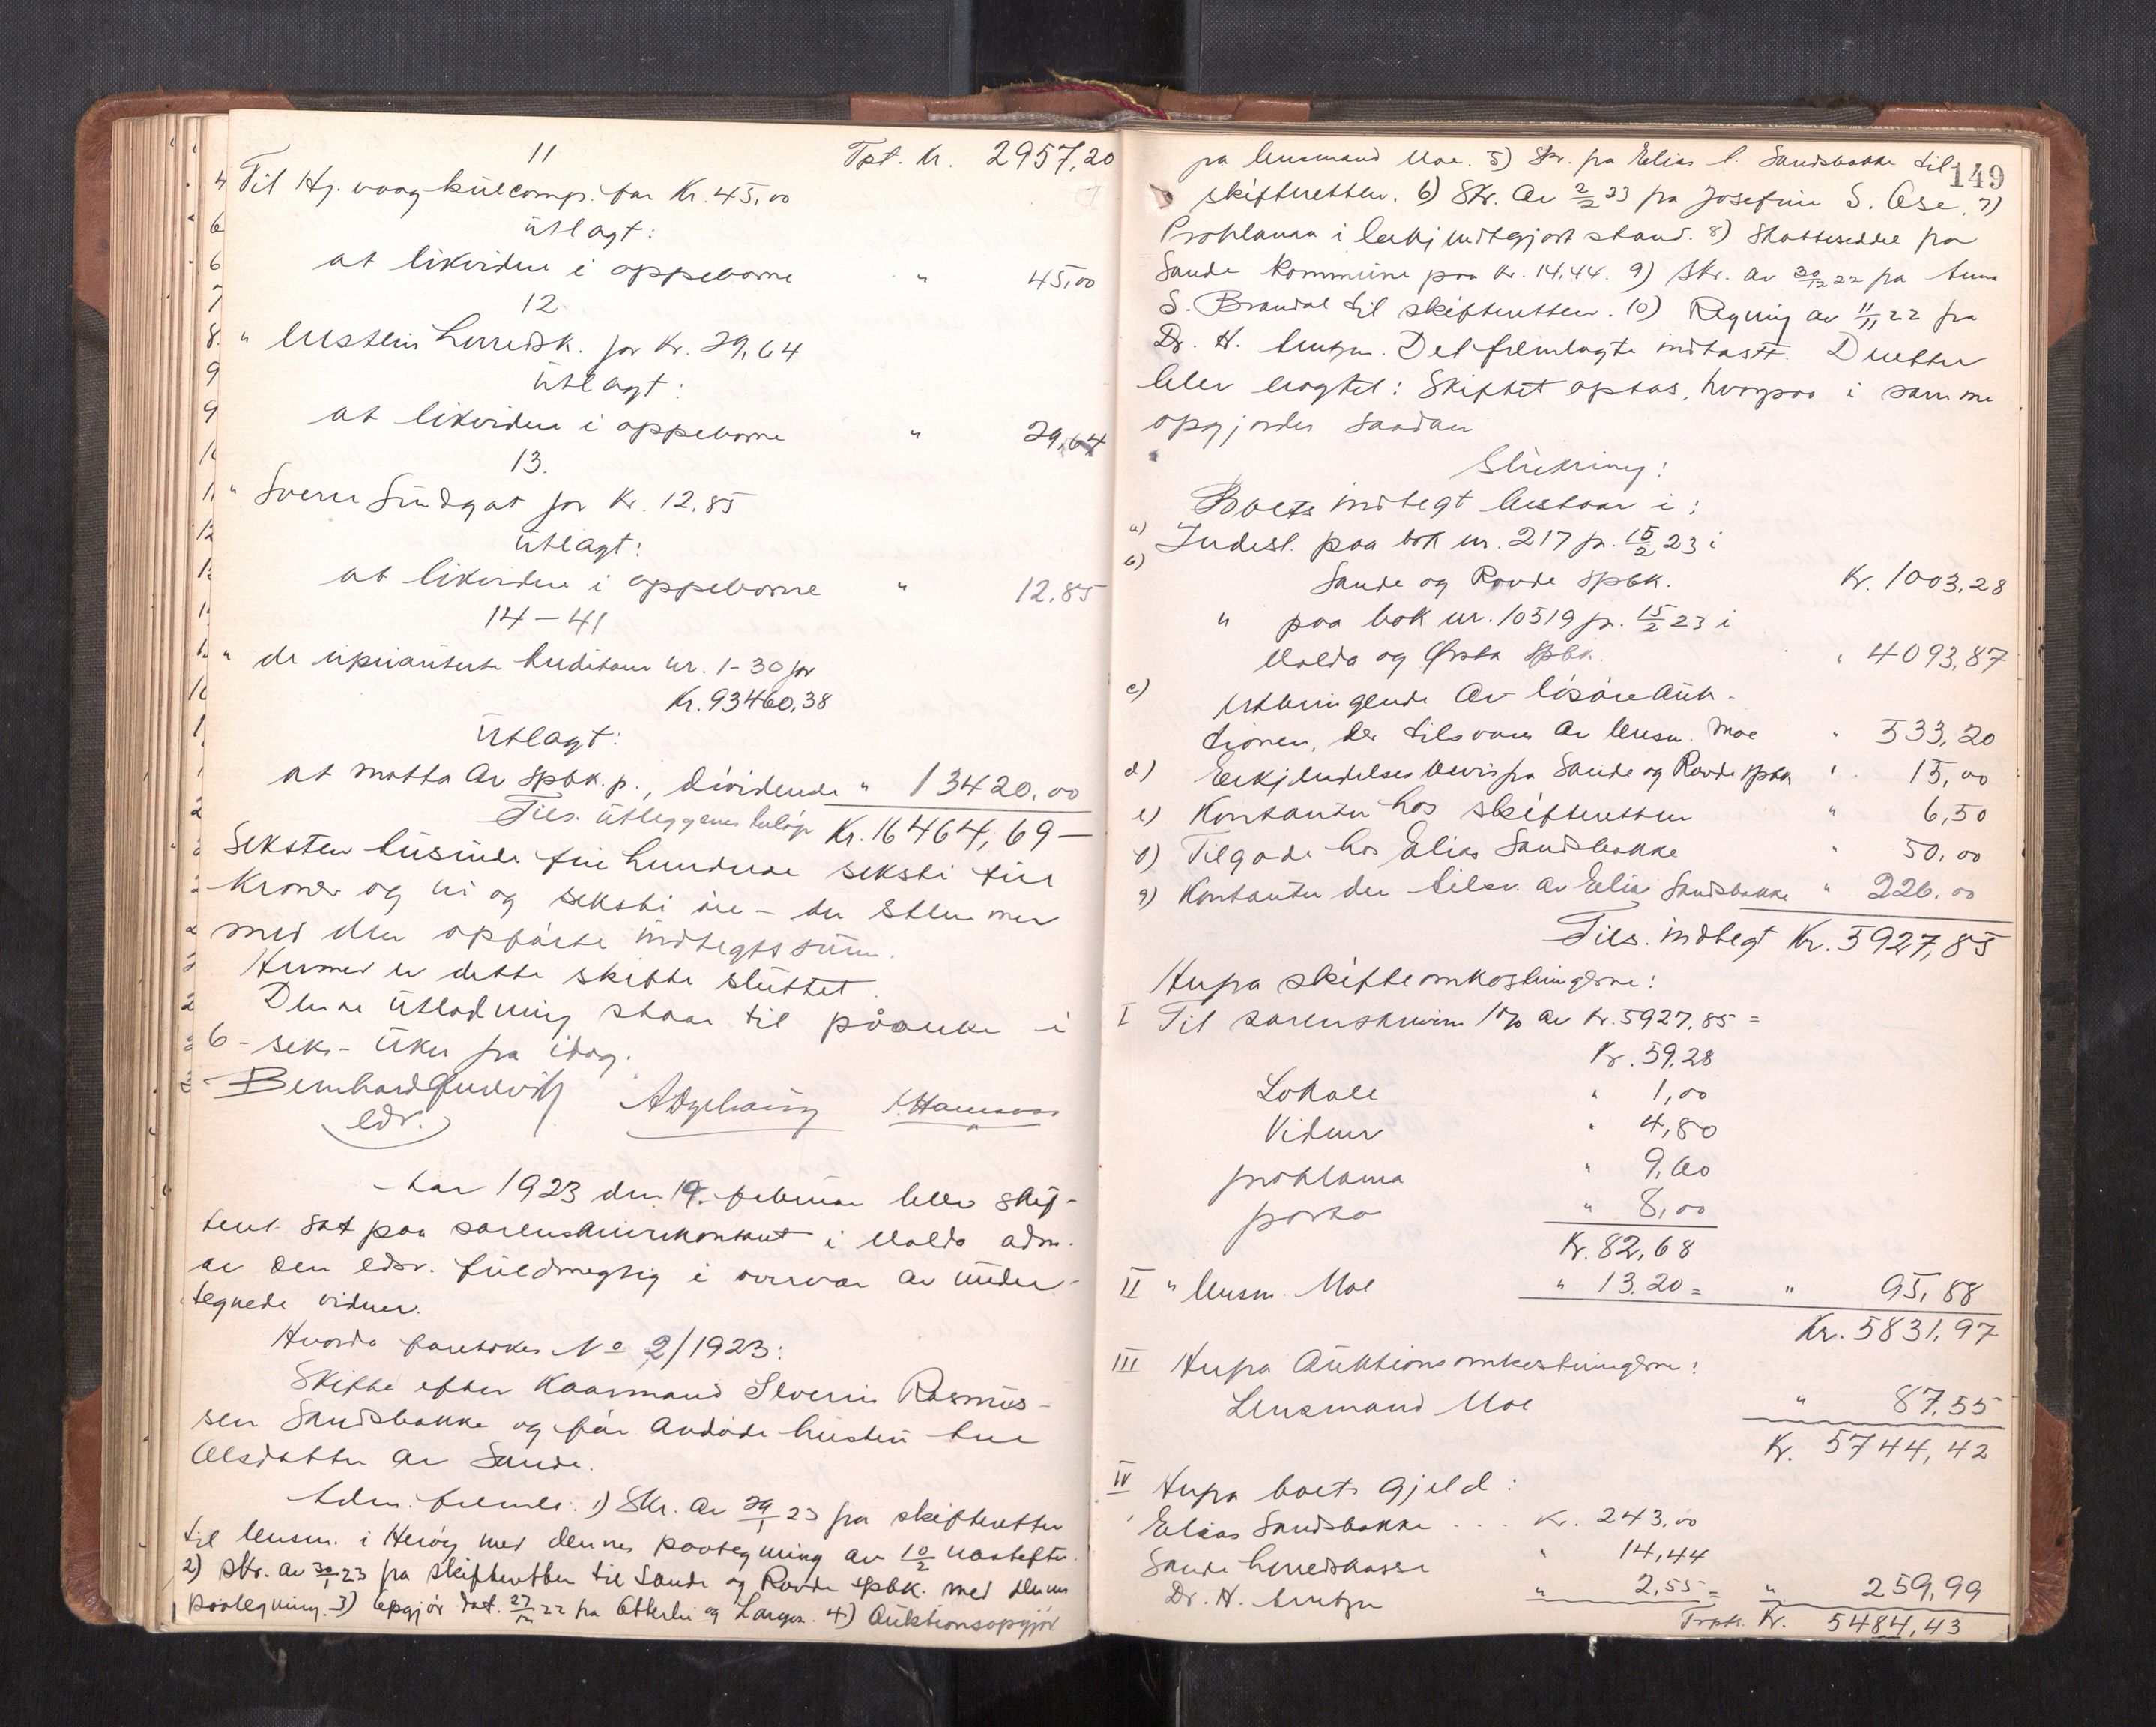 11
Tpt. Kr. 2957,20
Til Hj. vaag kulcomp. for Kr. 45,00
utlagt:
at likvidere i oppeborne " 45,00
12
" Austein herredsk. for Kr. 29,64
utlagt:
at likvidere i oppeborne " 29,64
13.
" Sverre Sundgot for Kr. 12,85
utlagt:
at likvidere i oppeborne " 12,85
14 – 41
" de upriviterte kreditorer nr. 1-30 for
Kr. 93460,38
Utlagt:
at motta av Spbk. p., dividende " 13420,00
Tils. utleggenes beløp Kr. 16464,69 —
Seksten tusinde fire hundrede seksti fire
kroner og ni og seksti øre – der stemmer
med den opførte indtegtssum.
Hermed er dette skifte sluttet.
Denne utlodning staar til påanke i
6 - seks - uker fra idag.
edsv.
Aar 1923 den 19. februar blev skif-
teret sat paa sorenskriverkontoret i Volda adm.
av den edsv. fuldmegtig i overvær av under-
tegnede vidner.
Hvorda foretokes No 2/1923:
Skifte efter Kaarmand Severin Rasmus-
sen Sandsbakke og før avdøde hustru Ane
Olsdatter av Sande.
Adm. fremla: 1) Skr. av 29/1 23 fra skifteretten
til lensm. i Herøy med dennes paategning av 10/2 næstefter.
2) Skr. av 30/1 23 fra skifteretten til Sande og Rovde spbk. med dennes
paategning. 3) Opgjør dat. 27/12 22 fra Otterlei og Larsen. 4) Auktionsopgjør
149
fra lensmand Moe. 5) Skr. fra Elias S. Sandsbakke til
skifteretten. 6) Skr. av 2/2 23 fra Josefine S. Ose. 7)
Proklama i bekjendtgjort stand. 8) Skatteseddel fra
Sande kommune paa kr. 14,44. 9) Skr. av 30/12 22 fra Anna
S. Brandal til skifteretten. 10) Regning av 11/11 22 fra
Dr. H. Arntzen. Det fremlagte indtast. Derefter
blev eragtet: Skiftet optas, hvorpaa i samme
opgjordes saadan
Slutning:
Boets indtegt bestaar i:
a) Indest. paa bok nr. 217 pr. 15/2 23 i
Sande og Rovde Spbk. Kr. 1003,28
b) " paa bok nr. 10519 pr. 15/2 23 i
Volda og Ørsta Spbk. " 4093,87
c) utbringende av løsøreauk-
tionen, der tilsvares av lensm. Moe " 533,20
d) Erkjendelsesbevis fra Sande og Rovde spbk " 15,00
e) Kontanter hos skifteretten " 6,50
f) Tilgode hos Elias Sandsbakke " 50,00
g) Kontanter der tilsv. av Elias Sandsbakke " 226,00
Tils. indtegt Kr. 5927,85
Herfra skifteomkostningerne:
I Til sorenskriveren 1% av Kr. 5927,85 =
Kr. 59,28
Lokale " 1,00
Vidner " 4,80
proklama " 9,60
porto " 8,00
Kr. 82,68
II " lensm. Moe " 13,20 = " 95,88
Kr. 5831,97
III Herfra Auktionsomkostningerne:
Lensmand Moe " 87,55
Kr. 5744,42
IV Herfra boets gjeld:
Elias Sandsbakke ... Kr. 243,00
Sande herredskasse " 14,44
Dr. H. Arntzen " 2,55 = " 259,99
Trpt. Kr. 5484,43